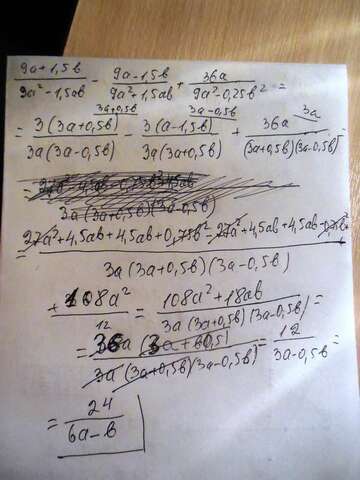 9a+1,5b / 9a²-1,5ab - 9a-1,5b / 9a²+1,5ab + 36a / 9a²-0,25b² =
= 3(3a+0,5b) / 3a(3a-0,5b) (3a+0,5b - 3(a-1,5b) / 3a(3a+0,5b) (3a-0,5b + 36a / (3a+0,5b)(3a-0,5b) (3a =
3a(3a+0,5b)(3a-0,5b)
= 27a²+4,5ab+4,5ab+0,75b²-27a²+4,5ab+4,5ab-0,75b² / 3a(3a+0,5b)(3a-0,5b)
+ 108a² = 108a²+18ab / 3a(3a+0,5b)(3a-0,5b) =
= 36a(3a+0,5) / 3a(3a+0,5b)(3a-0,5b) = 12 / 3a-0,5b =
12
= 24 / 6a-b